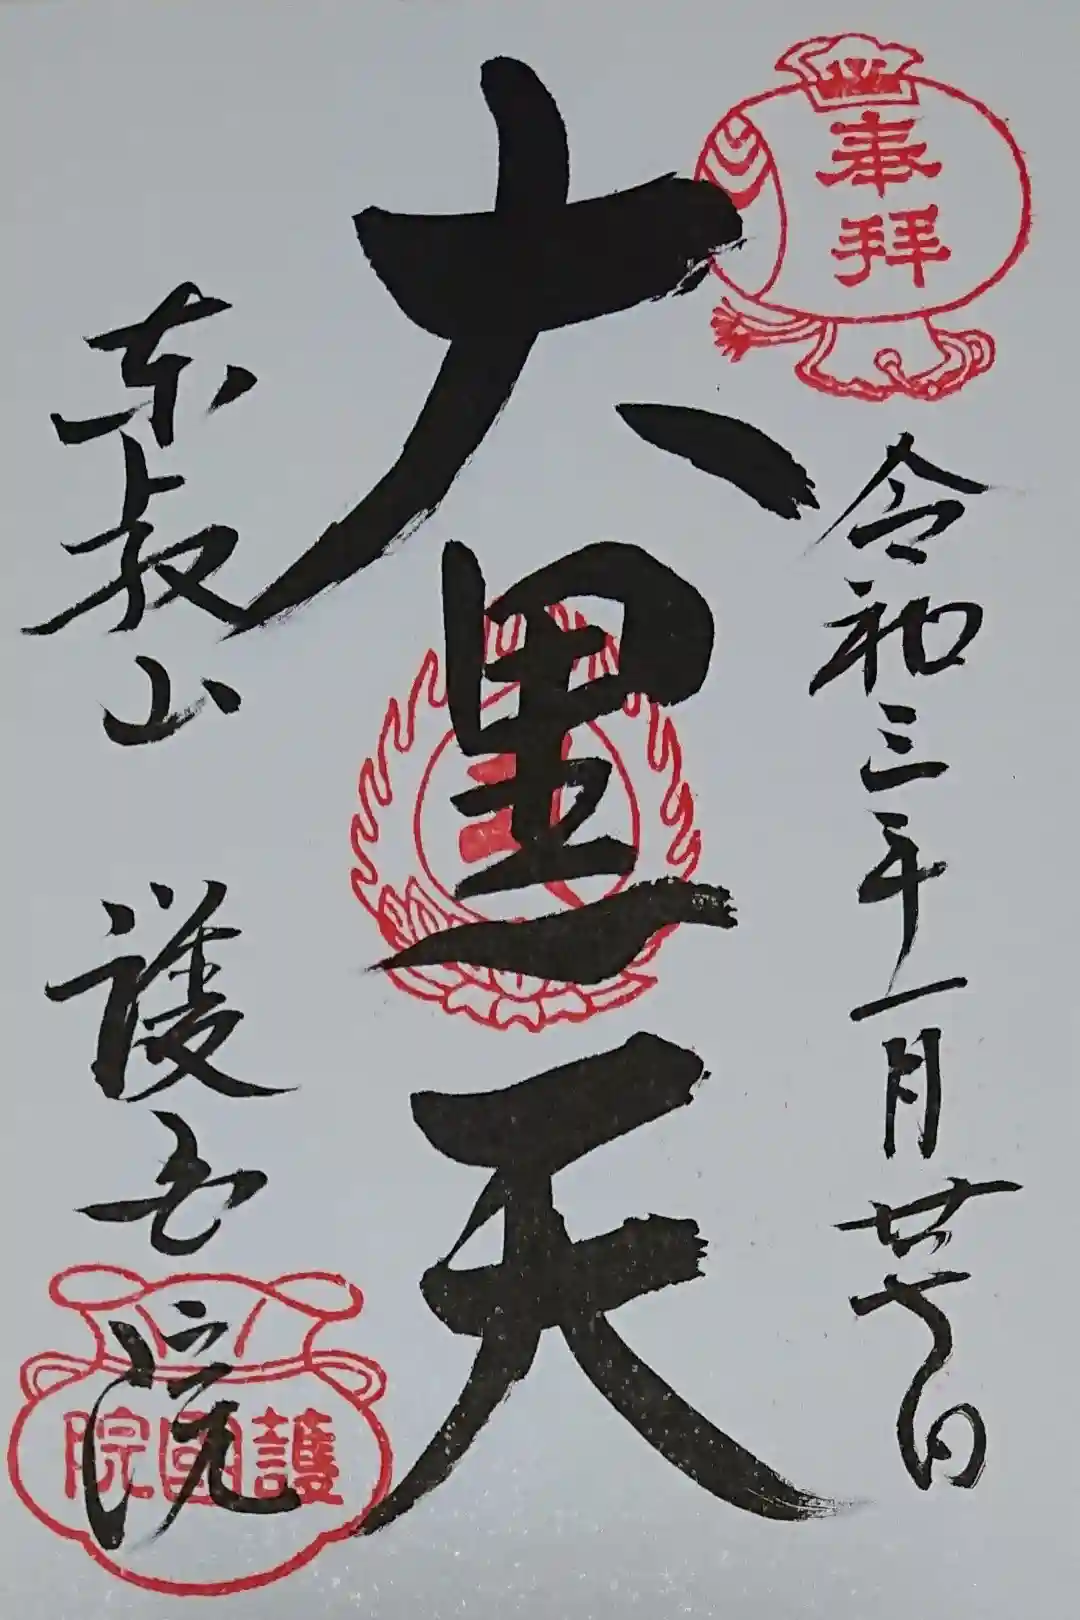 奉拝
令和三年一月廿七日
大黒天
東叡山 護国院
護國院